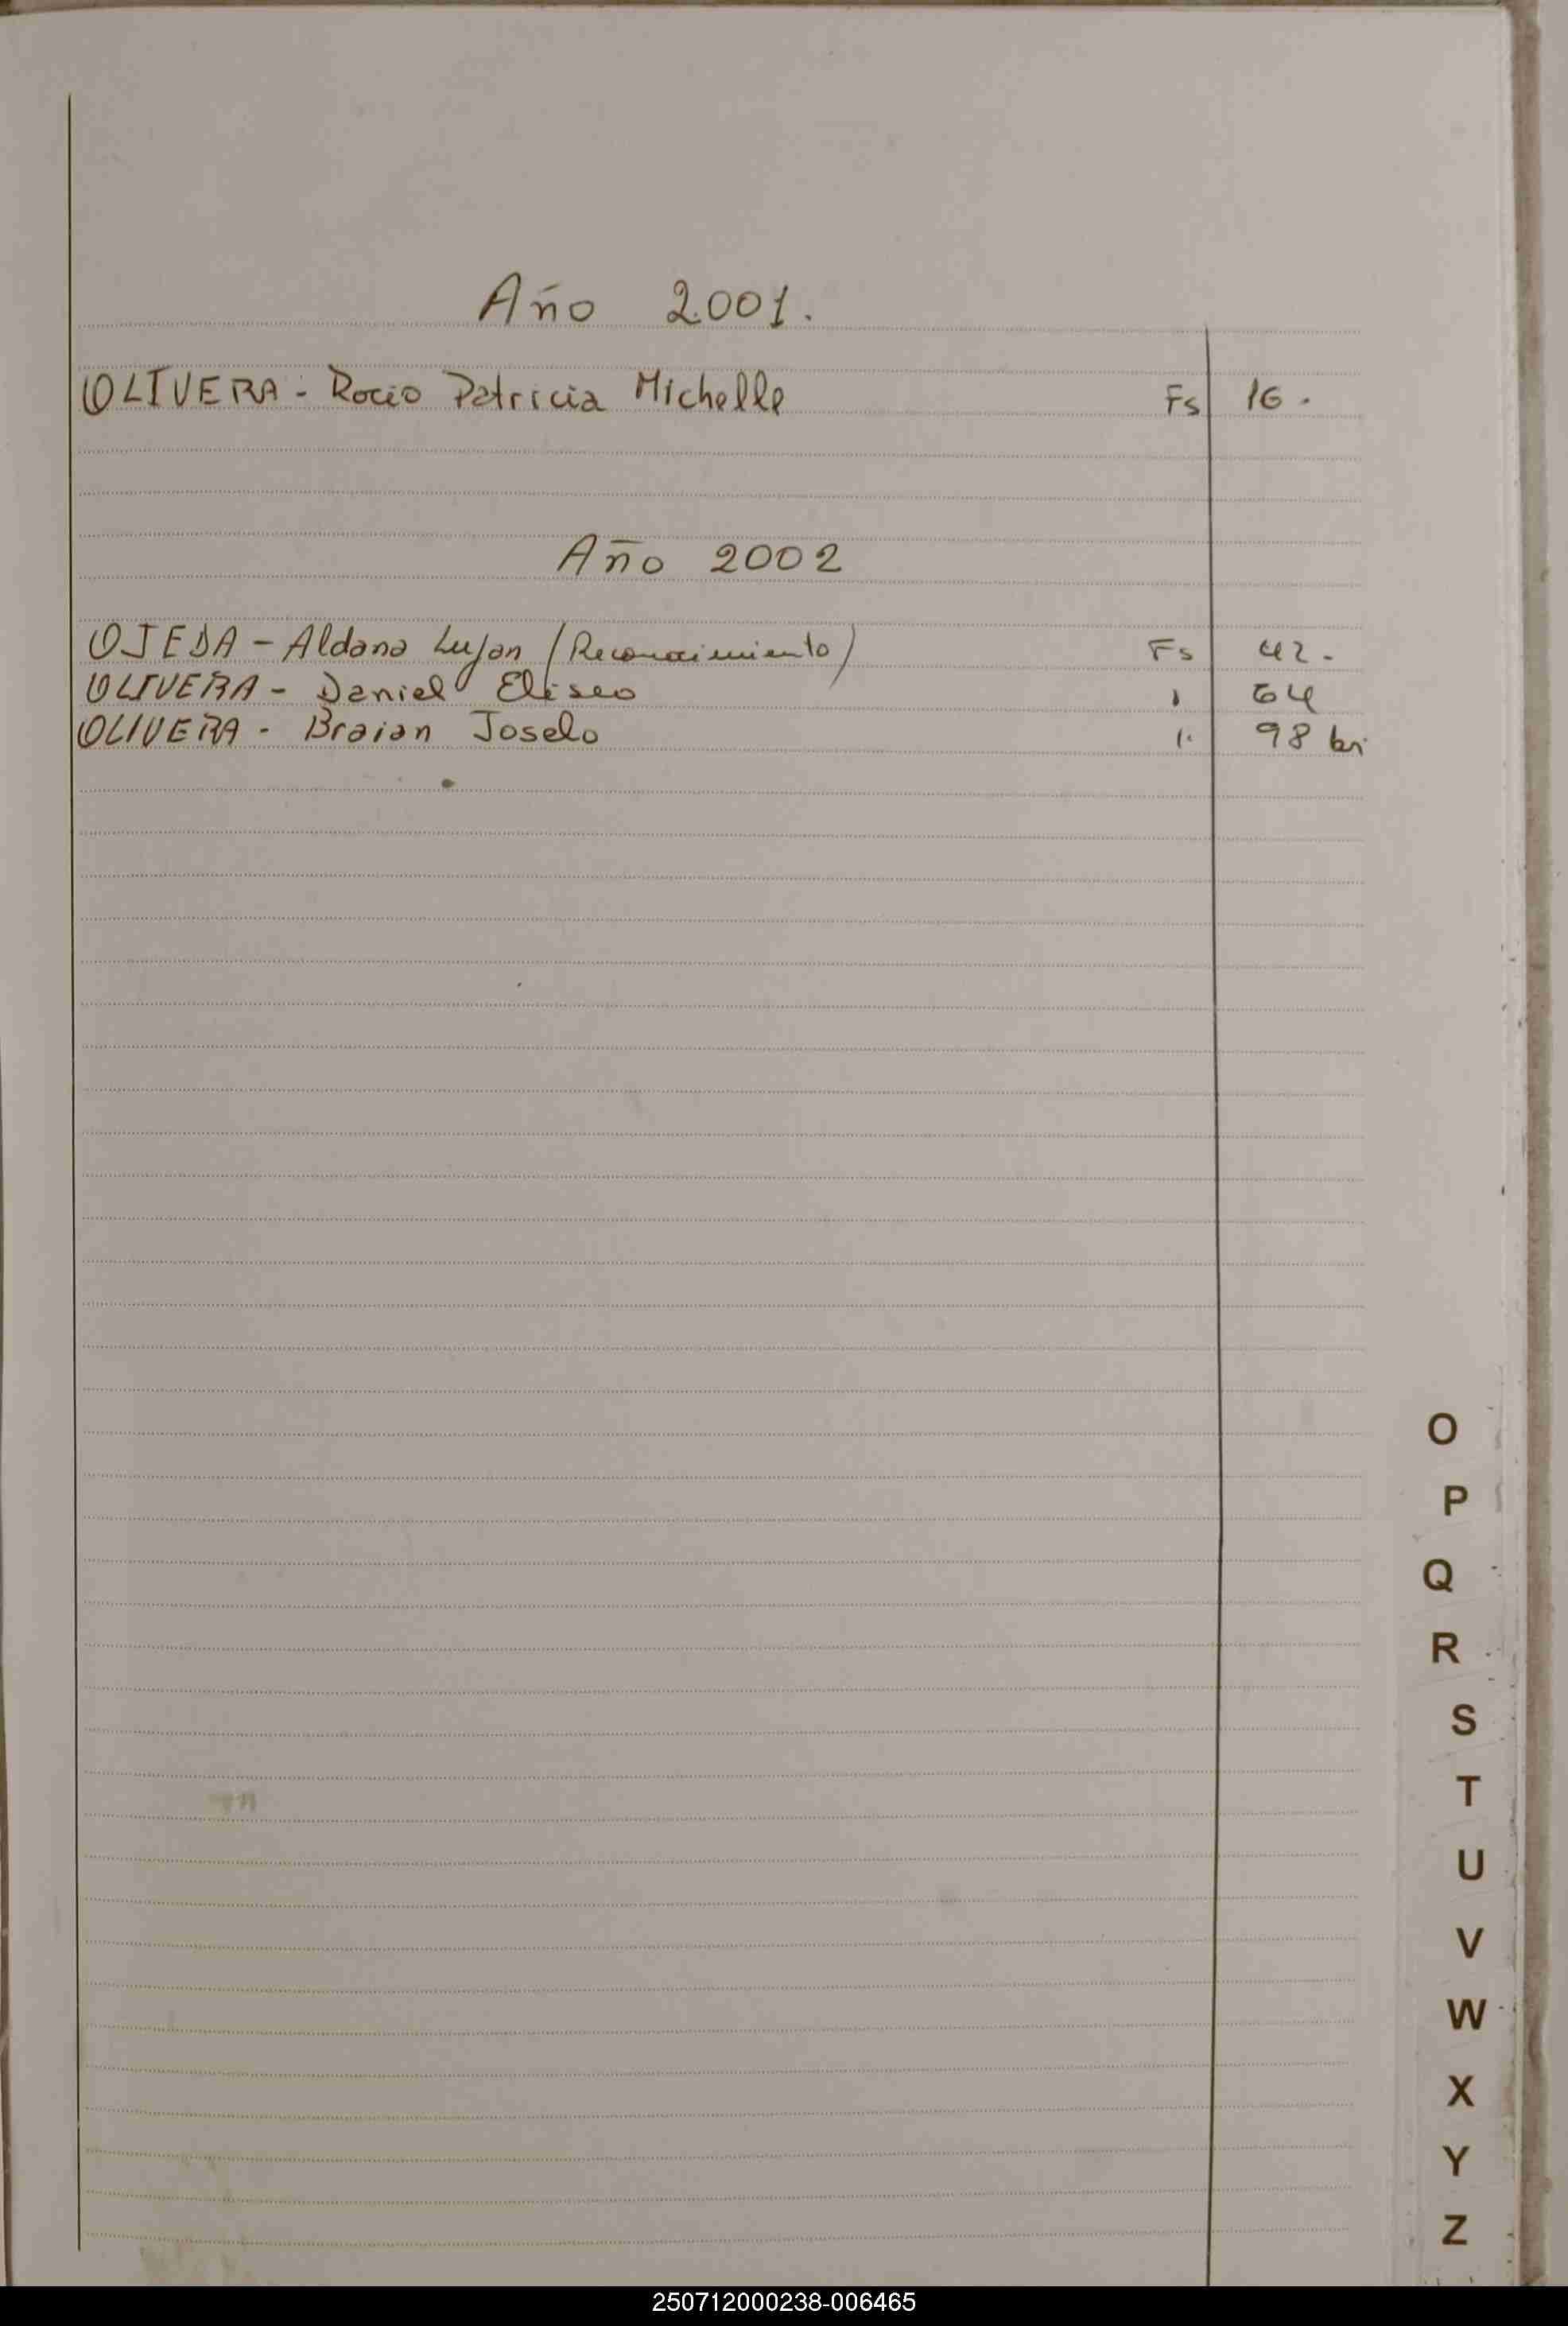 Año 2001.
OLIVERA - Rocio Patricia Michelle Fs 16.
Año 2002
OJEDA - Aldana Lujan (Reconocimiento) Fs 42-
OLIVERA - Daniel Eliseo " 64
OLIVERA - Braian Joselo " 98 bis
O
P
Q
R
S
T
U
V
W
X
Y
Z
250712000238-006465